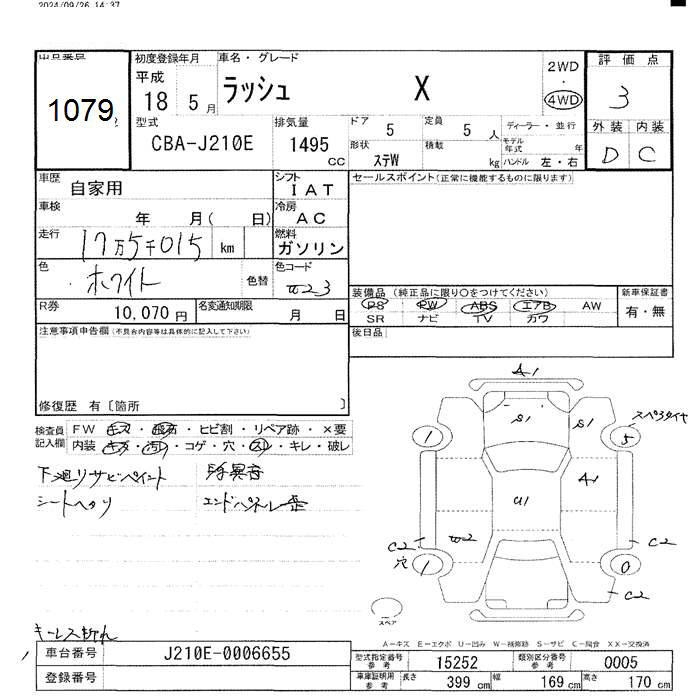 2024/09/26 14:37
出品番号
1079
初度登録年月
平成
18 5 月
車名・グレード
ラッシュ X
2WD
・
4WD
評価点
3
外装 内装
D C
型式
CBA-J210E
排気量
1495
cc
ドア
5
定員
5 人
形状
ステW
積載
kg
ディーラー・並行
モデル年式 年
ハンドル 左・右
車歴
自家用
シフト
IAT
セールスポイント(正常に機能するものに限ります)
車検
年 月( 日)
冷房
AC
走行
17万5千015 km
燃料
ガソリン
色
ホワイト
色替
色コード
W23
R券
10,070 円
名変通知期限
月 日
装備品 (純正品に限り○をつけてください)
PS PW ABS エアB AW
SR ナビ TV カワ
新車保証書
有・無
後日品
注意事項申告欄(不具合内容等は具体的に記入して下さい)
修復歴 有〔箇所 〕
検査員記入欄
FW キズ・飛石・ヒビ割・リペア跡・×要
内装 キズ・汚れ・コゲ・穴・スレ・キレ・破レ
下廻りサビペイント
異音
シートヘタリ
エンドパネル歪
キーレス折れ
A1
S1
S1
スペアタイヤ
1
5
A1
U1
W2
C2
穴
1
C2
0
C2
スペア
A-キズ E-エクボ U-凹み W-補修跡 S-サビ C-腐食 XX-交換済
車台番号
J210E-0006655
登録番号
型式指定番号
参考
15252
類別区分番号
参考
0005
車庫証明用
参考
長さ
399 cm
幅
169 cm
高さ
170 cm